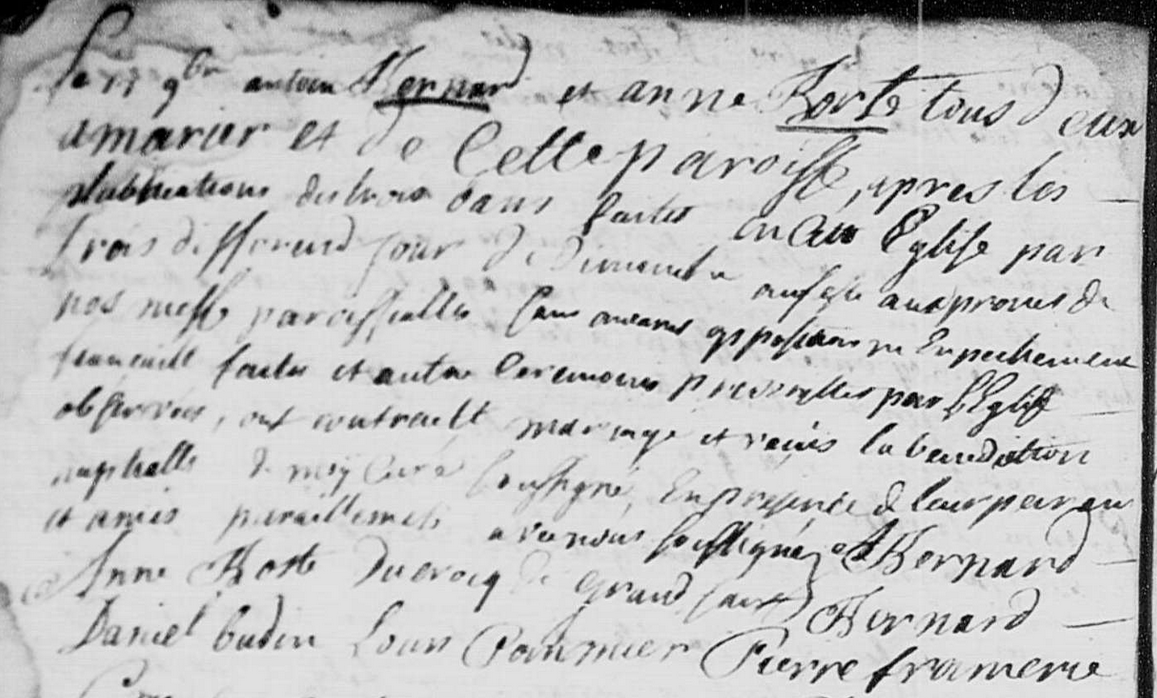 Le 11 9bre antoin Bernard et anne Borte tous deux
amarier et de Cette paroisse, apres les
publications destrois bans faites en cette Eglise par
trois differend jour de dimanche aux prones de
nos messe paroissialles sans aucune oppositions ny Enpechement
fiancaille faites et autre Ceremonies prescrittes par l'Eglise
observées, ont contractt mariage et recüs la benediction
nuptialle de moy Curé soussigné, En presence de leur paran
et amis pareillement avec nous soussignez A Bernard
Anne Boste Ducrocq grand Bernard
Daniel budin Louis Pommier Pierre framerie